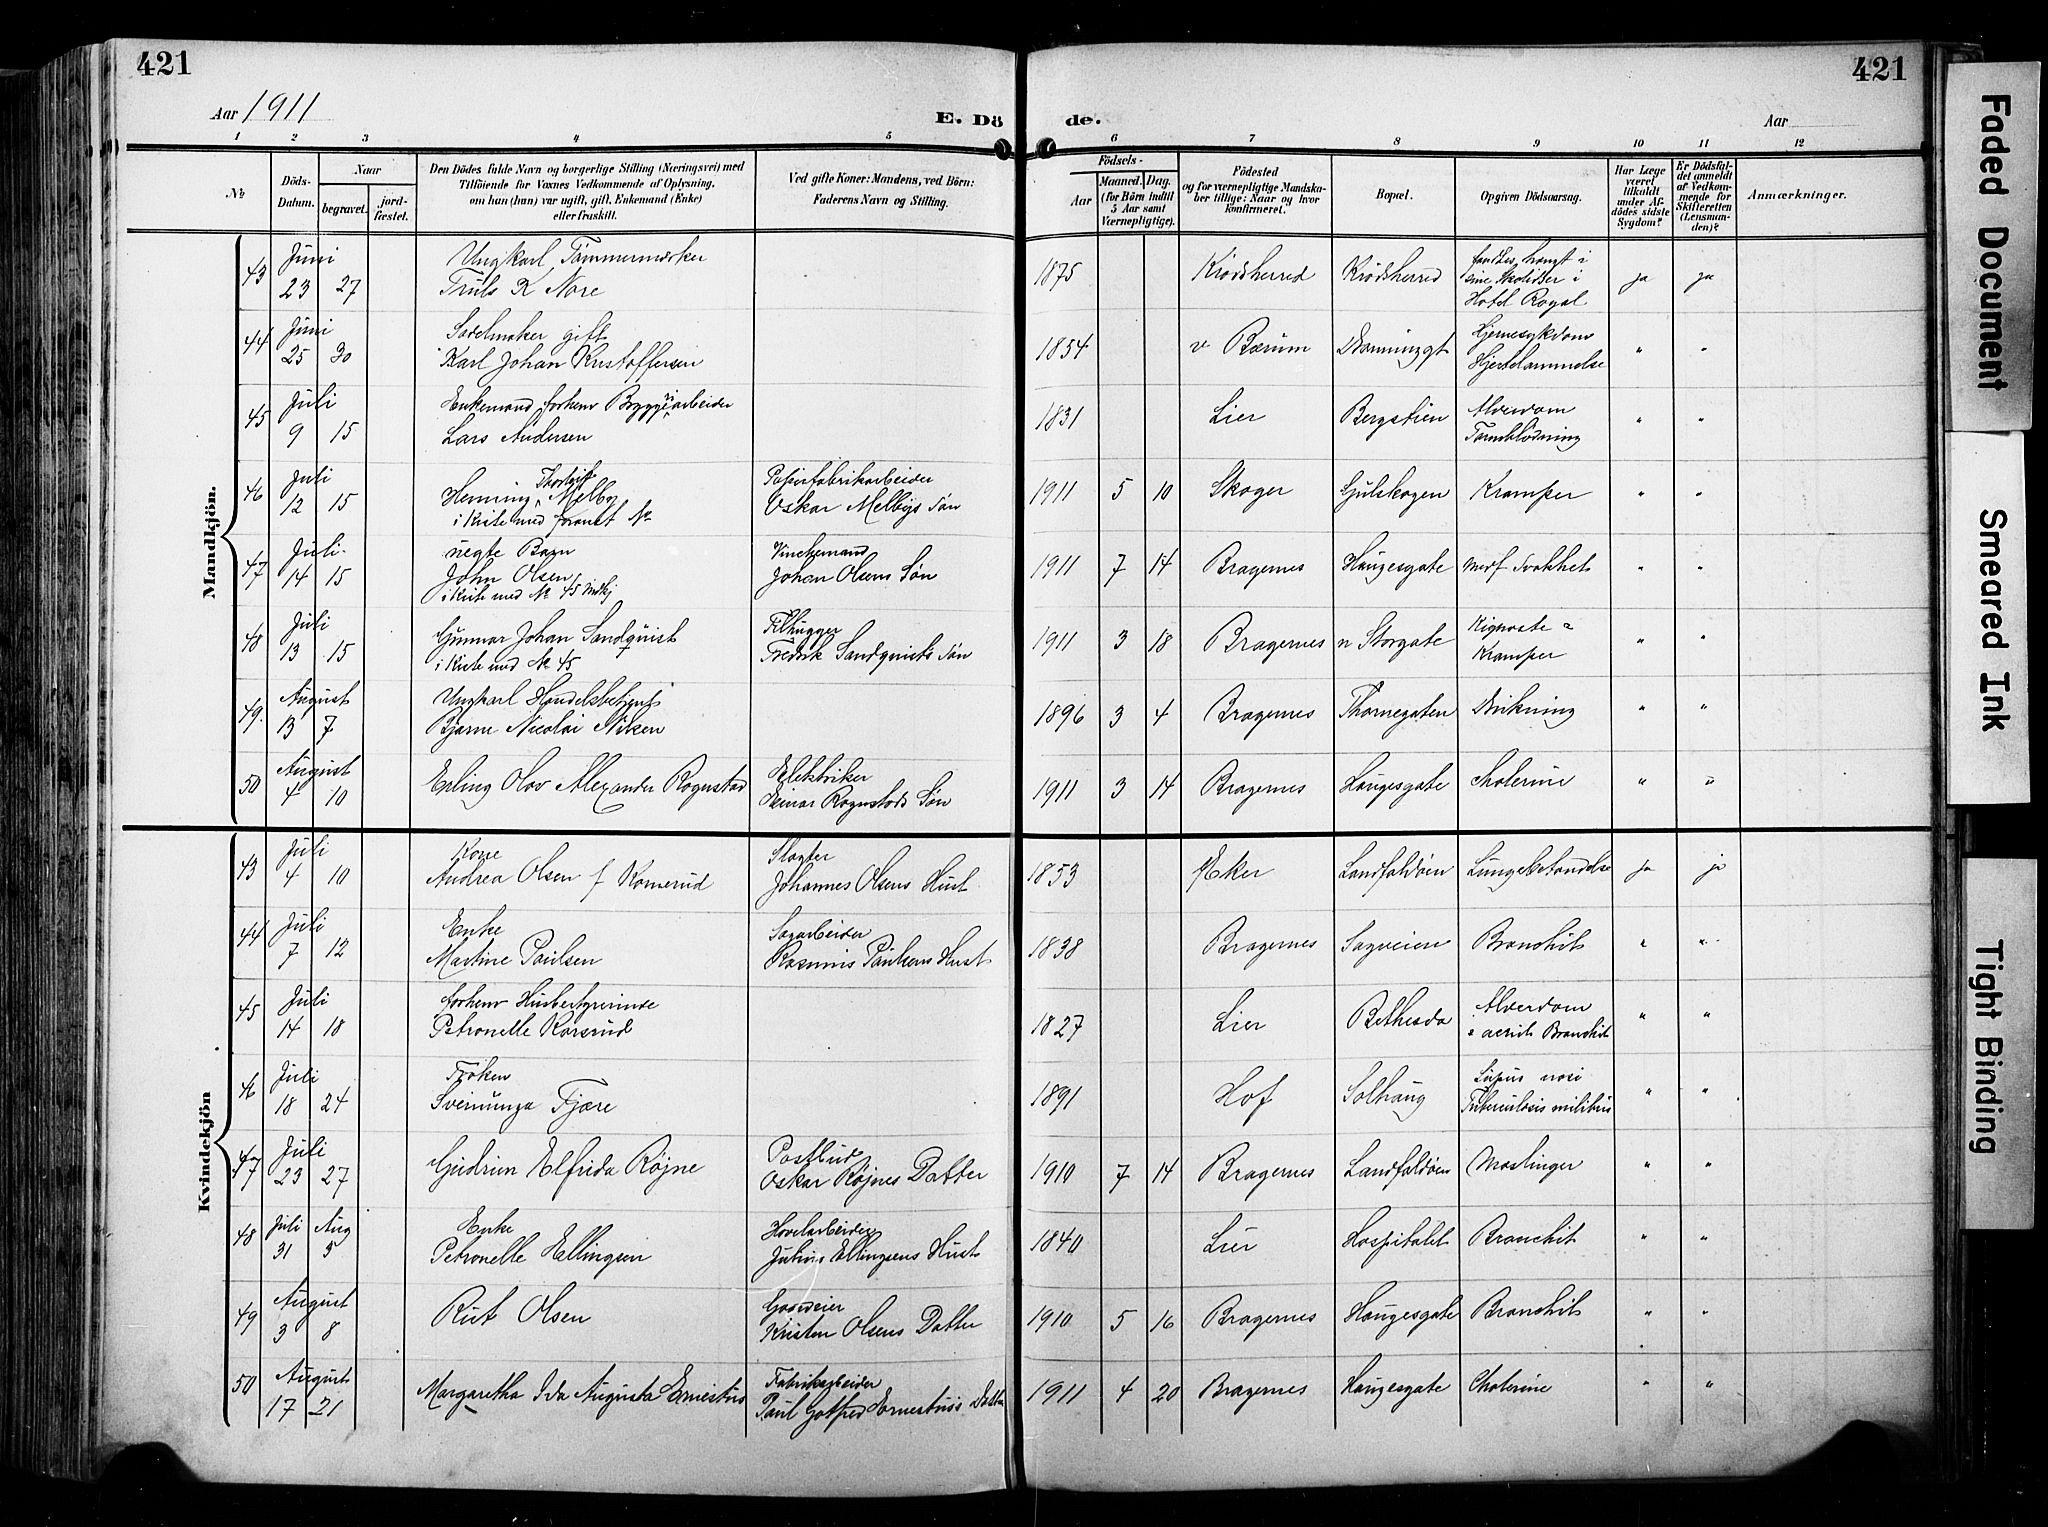 421
421
Aar 1911
E. Dö
de.
Aar
1 2 3 4 5 6 7 8 9 10 11 12
No
Döds-Datum.
Naar
begravet.
jord-fæstet.
Den Dödes fulde Navn og borgerlige Stilling (Næringsvei) med
Tilföiende for Voxnes Vedkommende af Oplysning,
om han (hun) var ugift, gift, Enkemand (Enke)
eller fraskilt.
Ved gifte Koner: Mandens, ved Börn:
Faderens Navn og Stilling.
Födsels-
Aar
Maaned. Dag.
(for Börn indtil
5 Aar samt
Værnepligtige).
Födested
og for værnepligtige Mandska-
ber tillige: Naar og hvor
konfirmeret.
Bopæl.
Opgiven Dödsaarsag.
Har Læge
været
tilkaldt
under Af-
dödes sidste
Sygdom?
Er Dödsfal-
det anmeldt
af Vedkom-
mende for
Skifteretten
(Lensman-
den)?
Anmærkninger.
Mandkjön.
43 Juni 23 27 Ungkarl Tømmermærker
Truls K Nore 1875 Krødsherred Krødsherred
Hotel Royal ja ja
44 Juni 25 30 Sadelmaker gift
Karl Johan Kristoffersen 1854 v Bærum Hjernesykdom
Hjertelammelse " "
45 Juli 9 15 Enkemand forhenv Bryggeriarbeider
Lars Andersen 1831 Lier Bergstien Alderdom
Tarmblødning " "
46 Juli 12 15 Henning Thorleif Melby
i Kiste med foranst No
Papirfabrikarbeider
Oskar Melbys Søn 1911 5 10 Skoger Gulskogen Kramper " "
47 Juli 14 15 uegte Barn
John Olsen
i Kiste med No 45 Mndkj
Johan Olsens Søn 1911 7 14 Bragernes Haugesgate Medf Svakhet " "
48 Juli 13 15 Gunnar Johan Sandquist
i Kiste med No 45
Filhugger
Fredrik Sandquists Søn 1911 3 18 Bragernes n Storgate Kighoste &
Kramper " "
49. August 13 7 Ungkarl Handelsbetjent
Bjarne Nicolai Nilsen 1896 3 4 Bragernes Thornegaten Drukning " "
50 August 4 10 Erling Olav Alexander Rognstad
Elektriker
Einar Rognstads Søn 1911 3 14 Bragernes Haugesgate Cholerine " "
Kvindekjön
43 Juli 4 10 Kone
Andrea Olsen f Komerud
Slagter
Johannes Olsens Hust 1853 Eker Landfaldøen Lungebetændelse ja ja
44 Juli 7 12 Enke
Martine Paulsen
Sagarbeider
Rasmus Paulsens Hust 1838 Bragernes Sagveien Bronchit " "
45 Juli 14 18 forhenv Husbestyrerinde
Petronelle Korsrud 1827 Lier Bethesda Alderdom
& acut Bronchit " "
46 Juli 18 24 Frøken
Sveinunga Fjære 1891 Hof Solhaug Lupus nasi
Tuberculosis miliaris " "
47 Juli 23 27 Gudrun Elfrida Røjne
Postbud
Oskar Røjnes Datter 1910 7 14 Bragernes Landfaldøen Meslinger " "
48 Juli 31 Aug 5 Enke
Petronelle Ellingsen
Høvelarbeider
Julius Ellingsens Hust 1840 Lier Hospitalet Bronchit " "
49 August 3 8 Rut Olsen
Gaardeier
Kristen Olsens Datter 1910 5 16 Bragernes Haugesgate Bronchit " "
50 August 17 21 Margaretha Ida Augusta Ernestus
Fabrikarbeider
Paul Gotfred Ernestus's Datter 1911 4 20 Bragernes Haugesgate Cholerine " "
Faded Document
Smeared Ink
Tight Binding